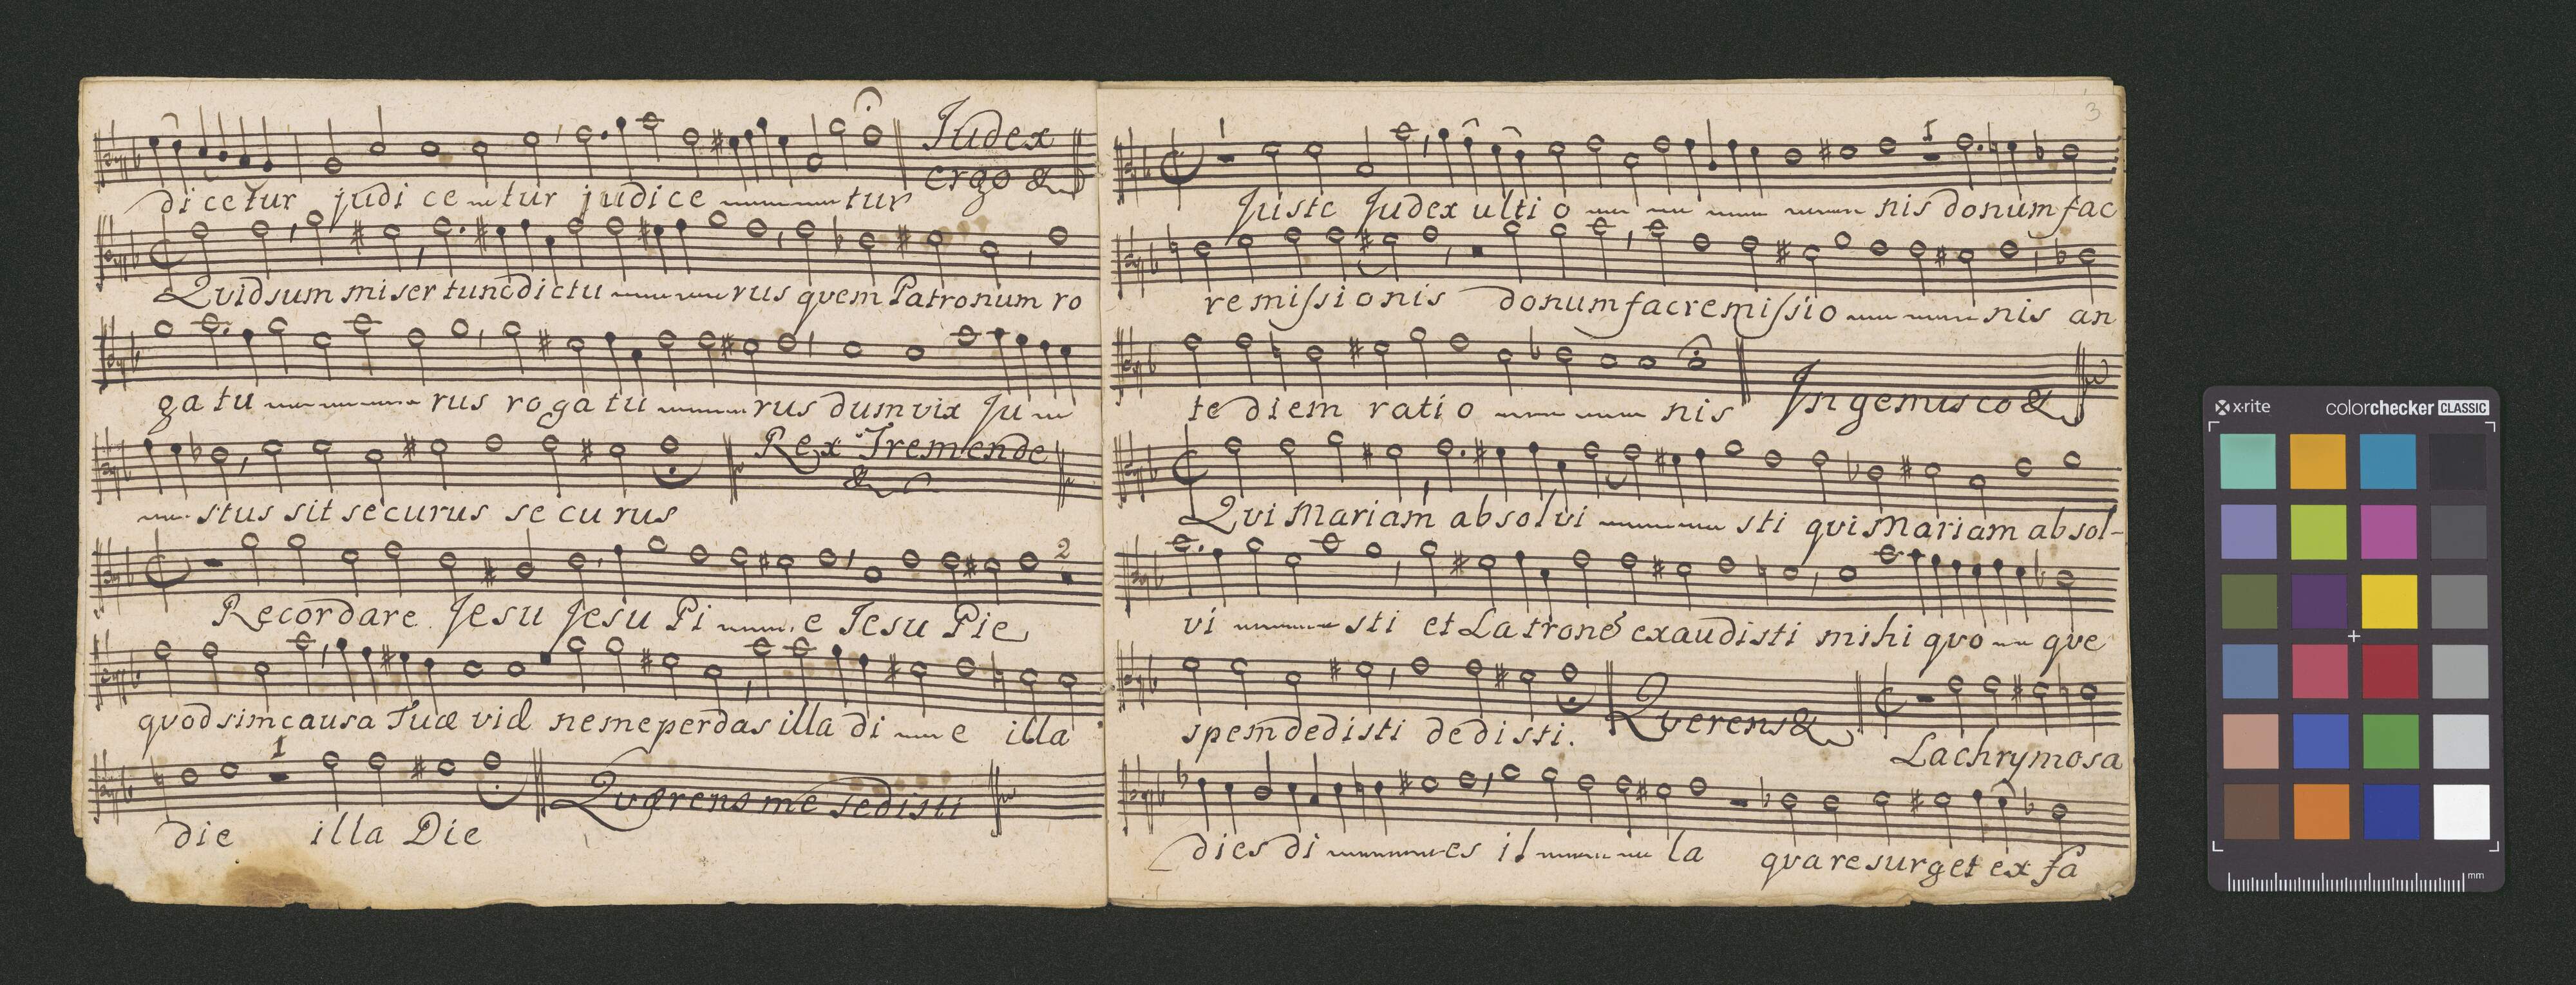 Judex
ergo &
dicetur judi ce tur judice tur
Quid sum miser tunc dictu rus quem Patronum ro
ga tu rus ro ga tu rus dum vix Ju
Rex Tremende
&
stus sit securus se cu rus
2
Recordare Jesu Jesu Pi e Jesu Pie
quod sim causa Tuæ viæ ne me perdas illa di e illa
1
Quærens me sedisti
die illa Die
3
1 1
Juste Judex ulti o nis donum fac
re missionis donum fac remissio nis an
te diem rati o nis
Ingemisco &
Qui Mariam absolvi sti qui Mariam absol-
vi sti et Latrone exaudisti mihi quo que
spem dedisti dedisti.
Querens &
Lachrymosa
dies di es il la qua resurget ex fa
x·rite colorchecker CLASSIC
mm